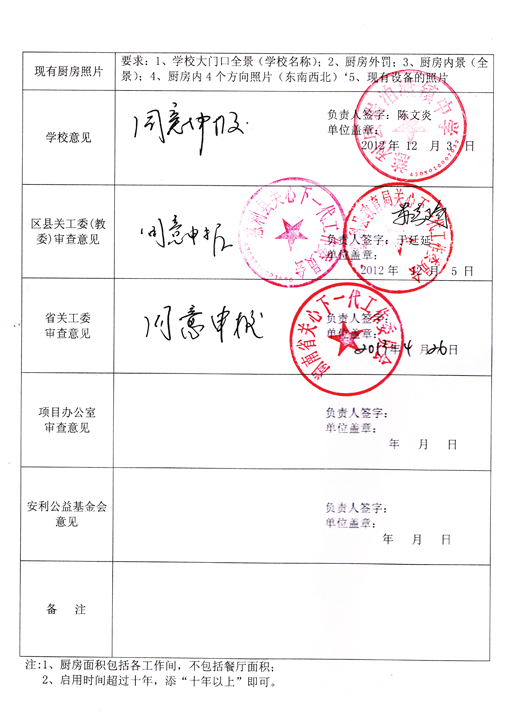 现有厨房照片
要求：1、学校大门口全景（学校名称）；2、厨房外罚；3、厨房内景（全
景）；4、厨房内4个方向照片（东南西北）‘5、现有设备的照片
学校意见
同意申报
负责人签字：陈文炎
单位盖章：
2012年 12 月 3 日
区县关工委(教
委)审查意见
同意申报
负责人签字：于延延
单位盖章：
2012 年 12 月 5 日
关心下一代工作委员会
省关工委
审查意见
同意申报
负责人签字：
单位盖章：
年4月26日
湖南省关心下一代工作委员会
项目办公室
审查意见
负责人签字：
单位盖章：
年 月 日
安利公益基金会
意见
负责人签字：
单位盖章：
年 月 日
备 注
注:1、厨房面积包括各工作间，不包括餐厅面积；
2、启用时间超过十年，添“十年以上”即可。